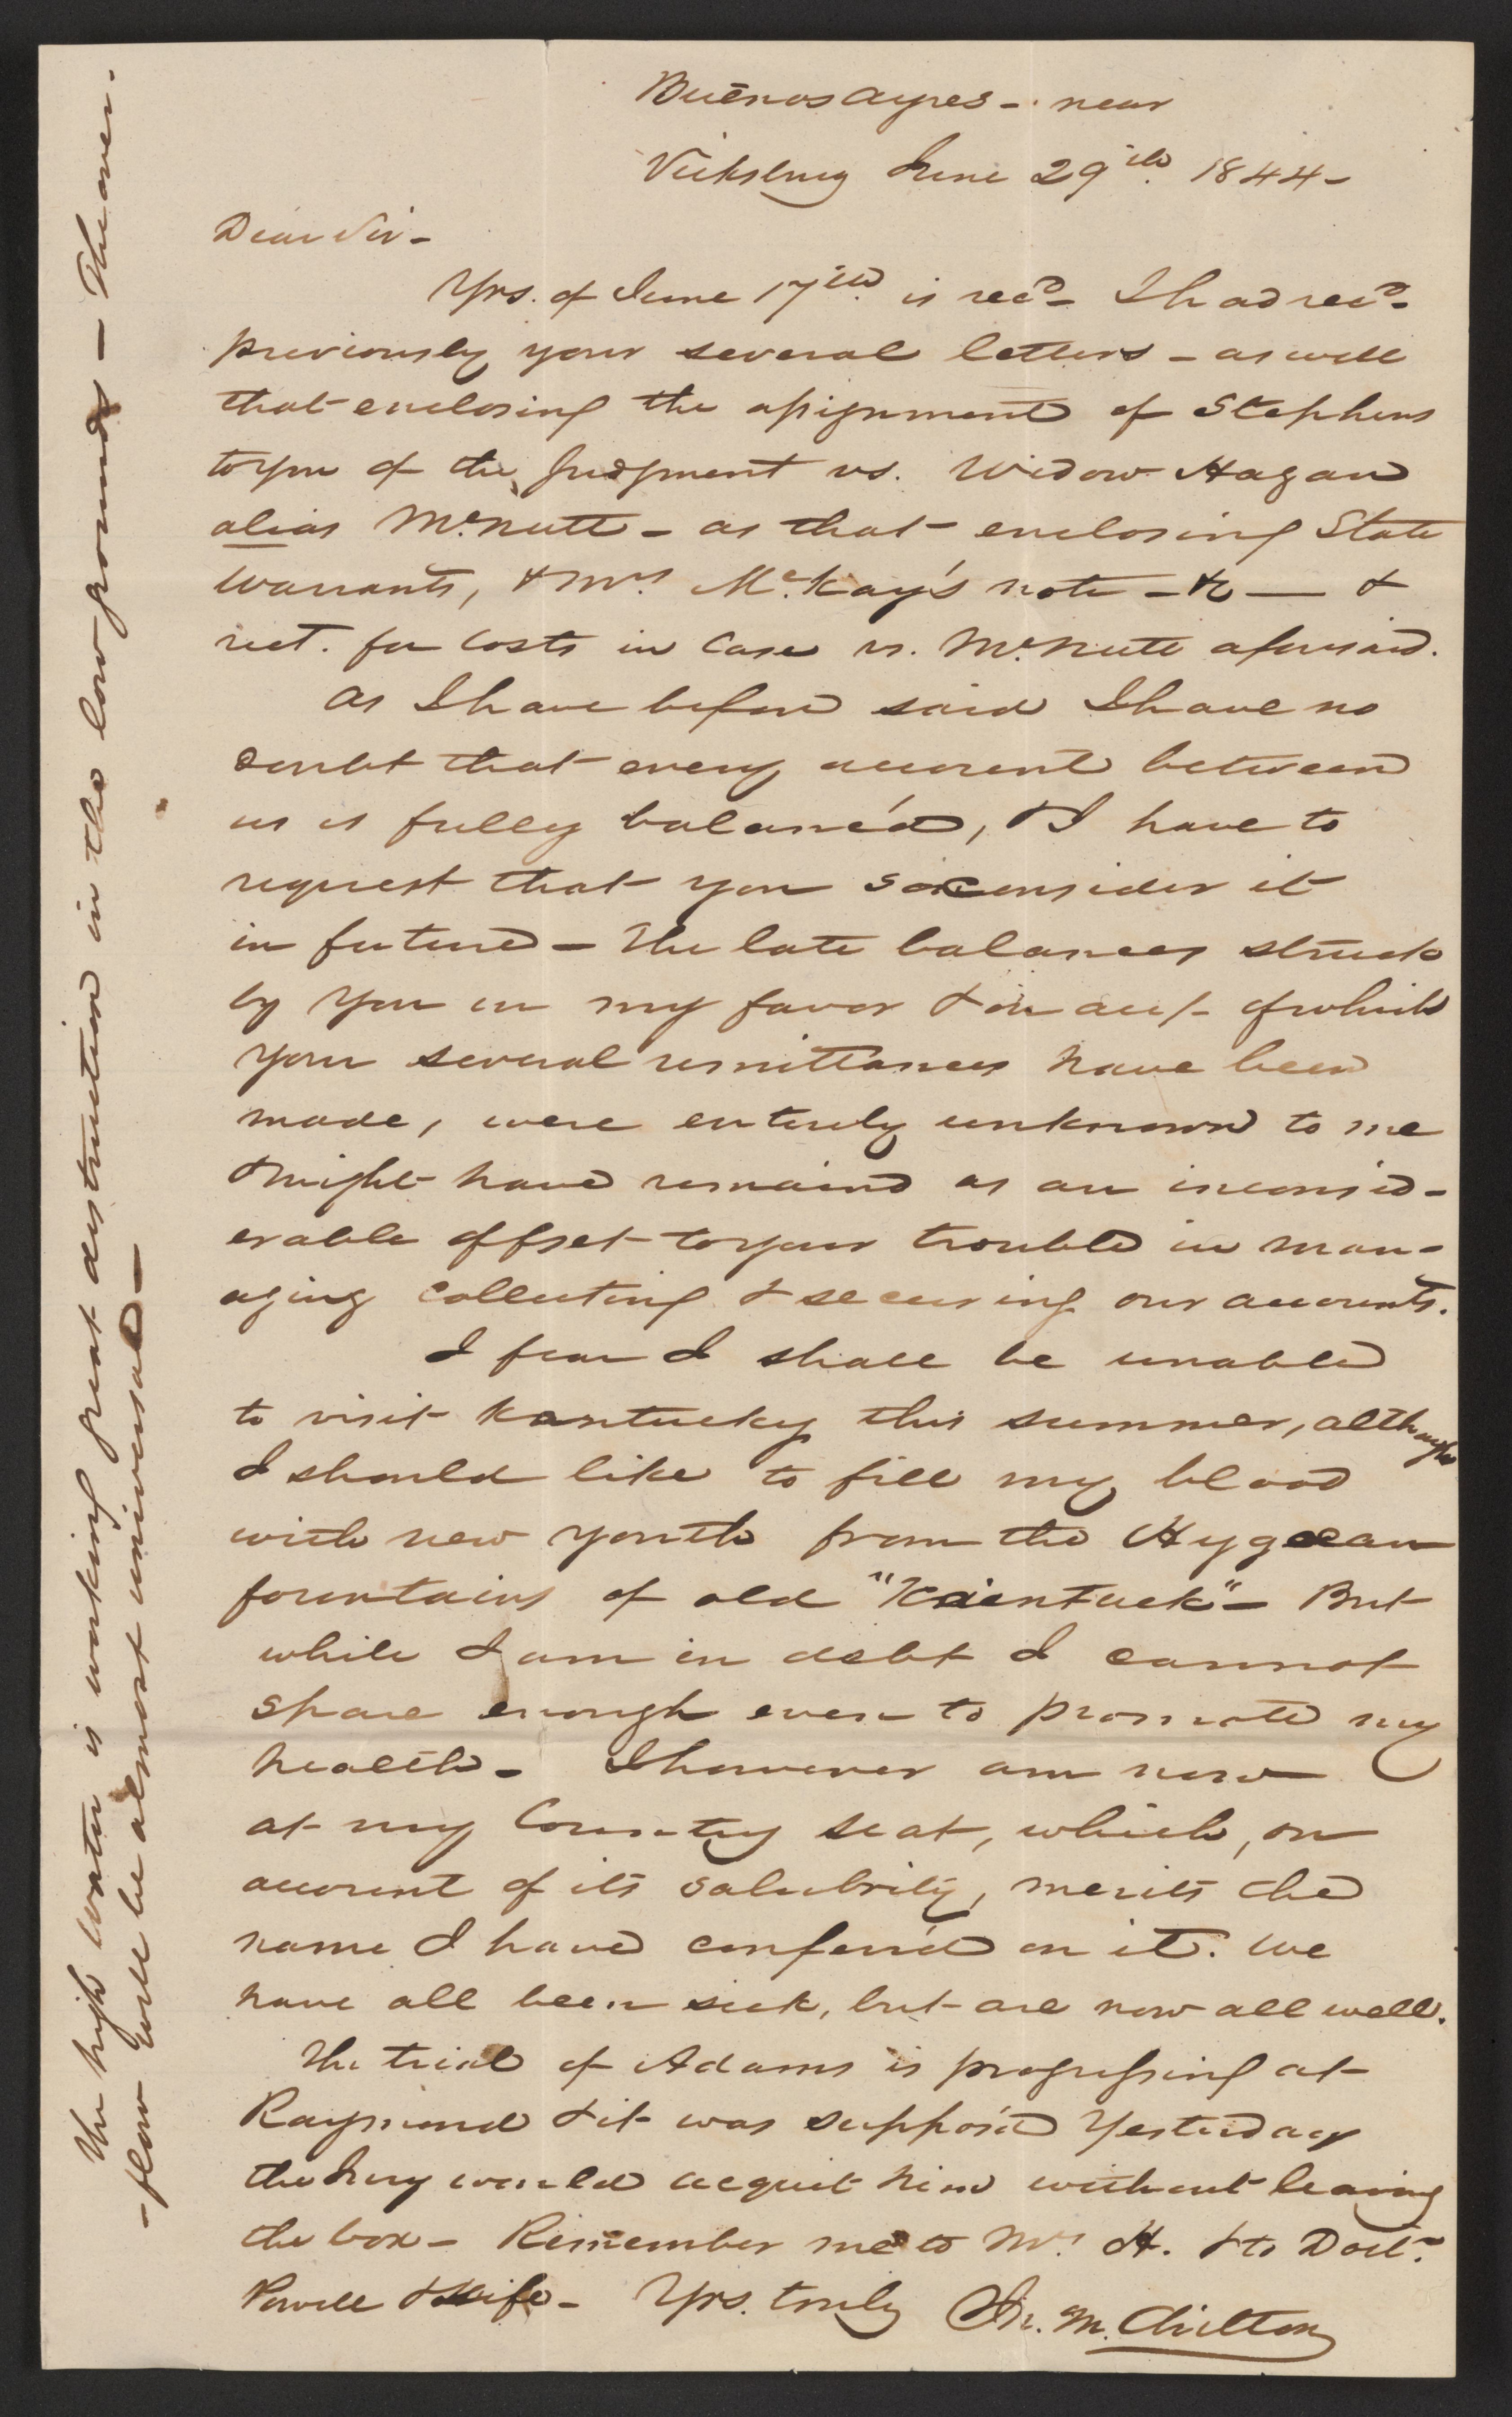 Buenos Ayres - near
Vicksburg June 29th. 1844 -
Dear Sir -
Yrs. of June 17th. is recd - I had recd.
previously your several letters - as well
that enclosing the assignment of Stephens
to you of the Judgment vs. Widow Hagan
alias McNutt - as that enclosing State
Warrants, & Mrs. McKay's note - &c — &
rect. for costs in case vs. McNutt aforesaid.
As I have before said I have no
doubt that every account between
us is fully balanc'd, & I have to
request that you so consider it
in future - The late balances struck
by you in my favor & on acc/- of which
your several remittances have been
made, were entirely unknown to me
& might have remaind as an inconsid-
erable offset to your trouble in man-
aging collecting & securing our accounts.
I fear I shall be unable
to visit Kentucky this summer, although
I should like to fill my blood
with new youth from the Hygeean
fountains of old "Kaintuck" - But
while I am in debt I cannot
spare enough even to promote my
health - I however am now
at my Country seat, which, on
account of its salubrity, merits the
name I have conferr'd on it. We
have all been sick, but are now all well.
The trial of Adams is progressing at
Raymond & it was suppos'd Yesterday
the Jury would acquit him without leaving
the box - Remember me to Mrs. H. & to Doctr.
Powell & wife - Yrs. truly Jn. M. Chilton
The high water is working great destruction in the low grounds - The over-
- flow will be almost universal -